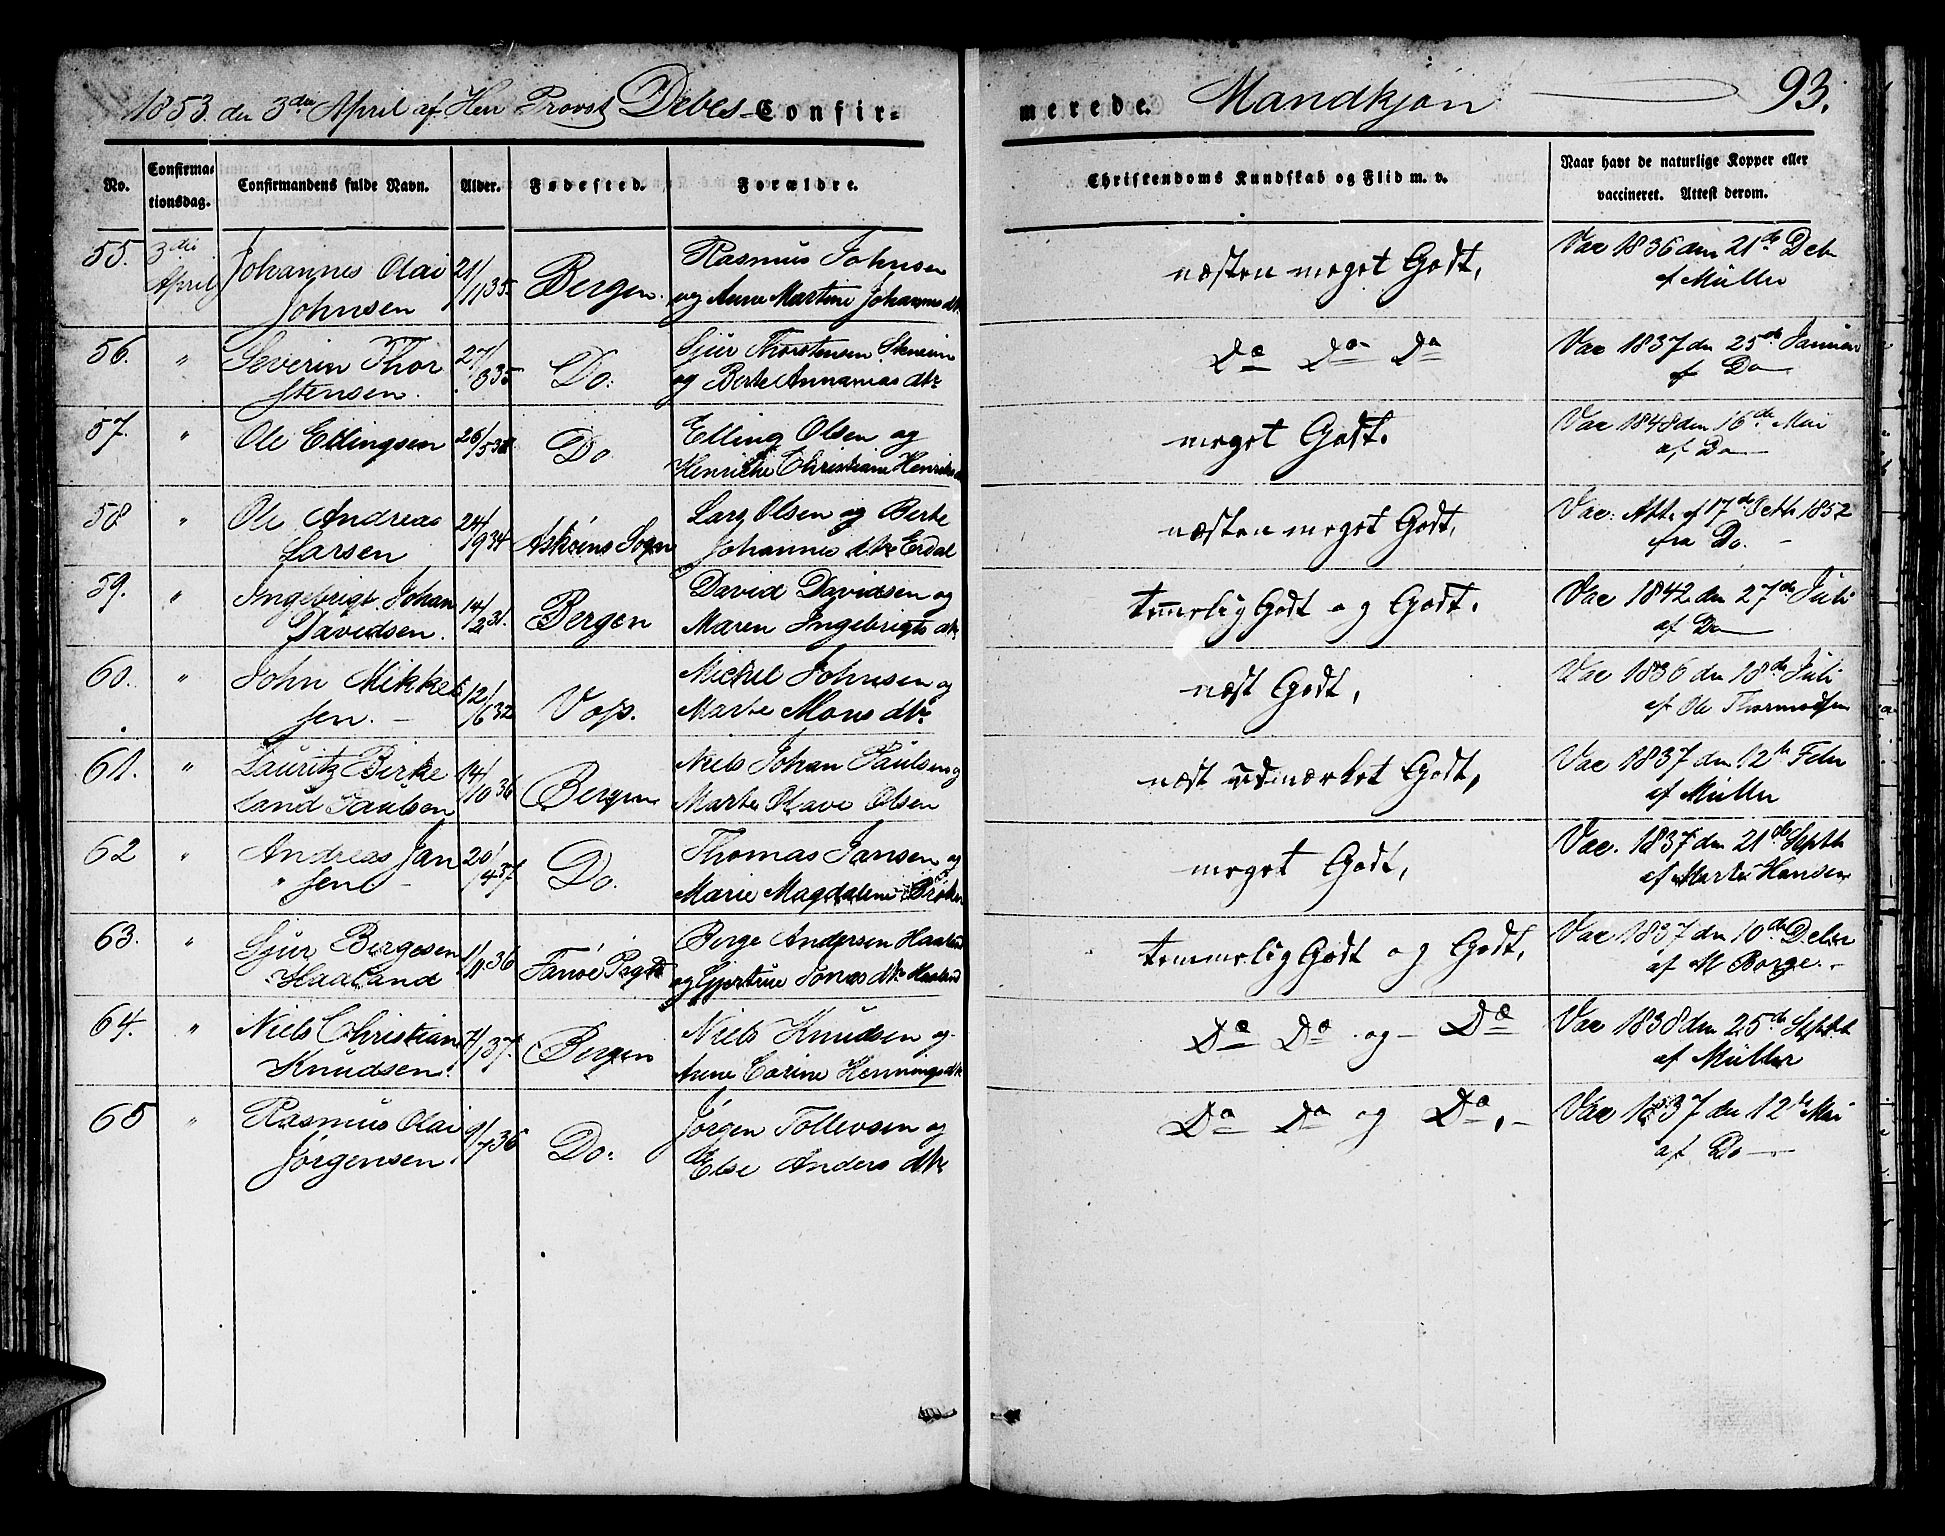 1853. den 3die April af Herr Provst Debes Confir-
merede. Mandkjøn 93.
No. Confirmationsdag. Confirmandens fulde Navn. Alder. Fødested. Forældre. Christendoms Kundskab og Flid m. v. Naar havt de naturlige Kopper eller vaccineret. Attest derom.
55. 3die April Johannes Olai 21/11 35. Bergen. Rasmus Johnsen næsten meget Godt, Vac 1836 den 21de Debr
Johnsen og Anne Martine Johannesdtr af Müller
56. " Severin Thor 27/8 35 Do: Sjur Thorstensen do do do Vac 1837 den 25de Januar
stensen. og Berte Annanias dtr af Do
57. " Ole Ellingsen 26/5 Do Elling Olsen og meget Godt. Vac 1848 den 16de Mai
Henriche Christiane af Do
58 " Ole Andreas 24/9 34 Askøens Sogn Lars Olsen og Berte næsten meget Godt, Vac: Att. af 17de Octb 1852
Larsen Johannes dtr Erdal fra Do.
59. " Ingebrigt Johan 14/2 31. Bergen David Davidsen og temmelig Godt og Godt. Vac 1842 den 27de Juli
Davidsen. Maren Ingebrigts dtr af Do
60. " John Mikkel 12/6 32 Voss. Michel Johnsen og næst Godt, Vac 1836 den 18de Juli
sen. Marte Mons dtr af Ole Thormodsen
61. " Lauritz Birke 14/10 36 Bergen Niels Johan Paulsen og næst udmærket Godt, Vac 1837 den 12te Febr
land Paulsen Marte Olave Olsen af Müller
62 " Andreas Jan 20/4 37. Do. Thomas Jansen og meget Godt, Vac. 1837 den 21de Septb
sen Marie Magdalene af Marte Hansen
63. " Sjur Børgesen 1/11 36 Fanøe Børge Andersen Haaland temmelig Godt og Godt, Vac 1837 den 10de Debr
Haaland og Gjertrue Jonas dtr Haaland af M Borge.
64. " Niels Christian 7/1 37. Bergen Niels Knudsen og do do og do Vac 1838 den 25de Septbr
Knudsen. Anne Carine Hennings dtr af Müller
65 " Rasmus Olai 9/7 36 Do: Jørgen Tollevsen og do do og do. Vac 1837 den 12te Mai
Jørgensen. Else Anders dtr af Do